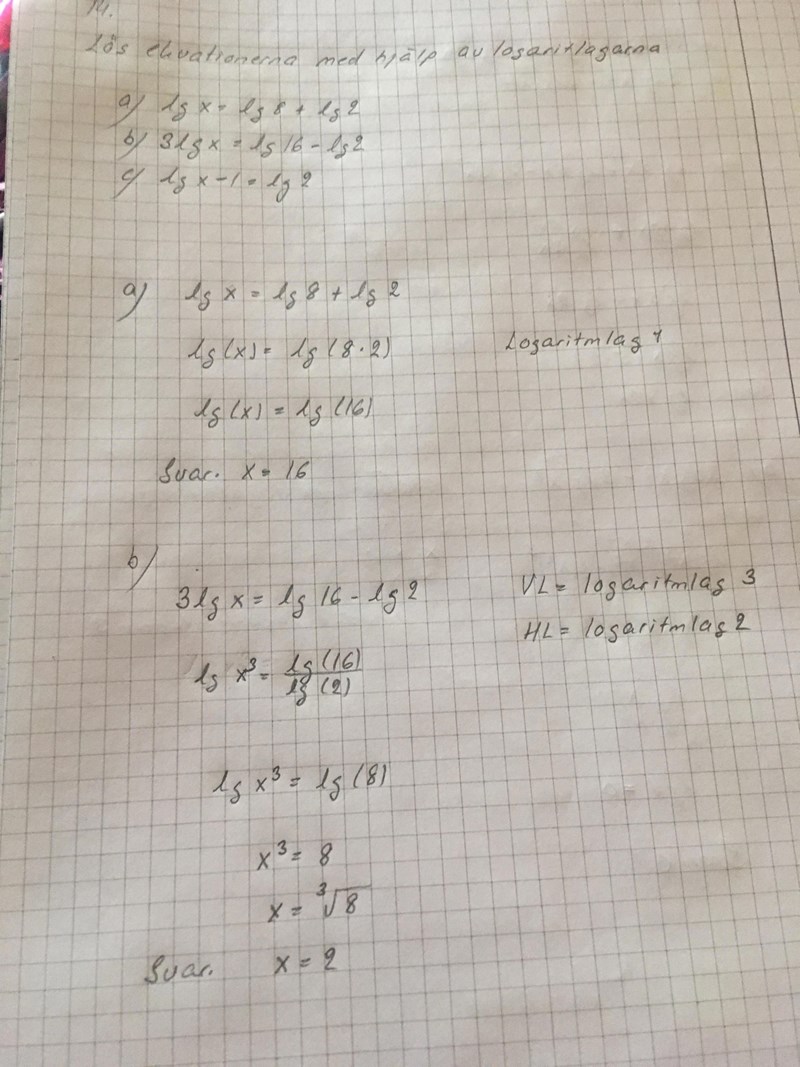 14.
Lös ekvationerna med hjälp av logaritlagarna
a) lg x = lg 8 + lg 2
b) 3 lg x = lg 16 - lg 2
c) lg x - 1 = lg 2
a) lg x = lg 8 + lg 2
lg (x) = lg (8 · 2) Logaritmlag 1
lg (x) = lg (16)
Svar. x = 16
b)
3 lg x = lg 16 - lg 2 VL = logaritmlag 3
HL = logaritmlag 2
lg x³ = lg (16) / lg (2)
lg x³ = lg (8)
x³ = 8
x = ³√8
Svar. x = 2